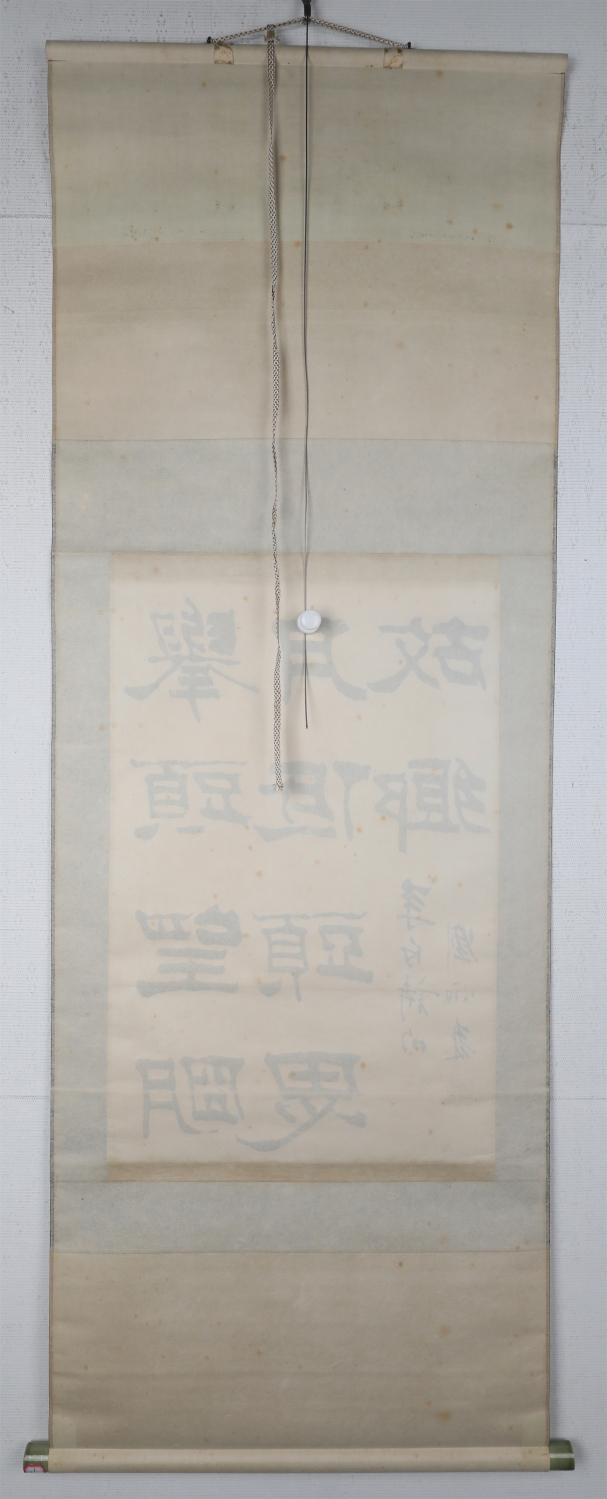 舉頭望明
月低頭思
故鄉